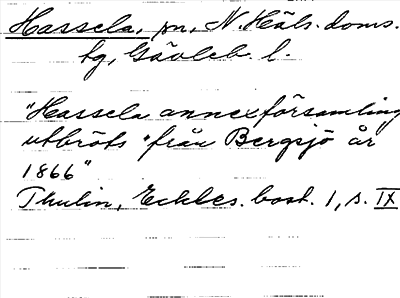 Hassela, pn, N. Häls. doms.
hg, Gävleb. l.
"Hassela annexförsamling
utbröts från Bergsjö år
1866"
Thulin, Eckles. bost. 1, s. IX